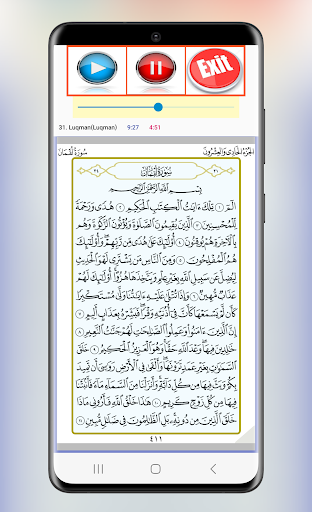 Exit
31. Luqman(Luqman) 9:27 4:51
الجزء الحادي والعشرون سورة لقمان
سورة لقمان
بِسْمِ ٱللَّهِ ٱلرَّحْمَٰنِ ٱلرَّحِيمِ
الٓمٓ ١ تِلْكَ ءَايَٰتُ ٱلْكِتَٰبِ ٱلْحَكِيمِ ٢ هُدًى وَرَحْمَةً
لِّلْمُحْسِنِينَ ٣ ٱلَّذِينَ يُقِيمُونَ ٱلصَّلَوٰةَ وَيُؤْتُونَ ٱلزَّكَوٰةَ وَهُم
بِٱلْءَاخِرَةِ هُمْ يُوقِنُونَ ٤ أُوْلَٰٓئِكَ عَلَىٰ هُدًى مِّن رَّبِّهِمْ وَأُوْلَٰٓئِكَ
هُمُ ٱلْمُفْلِحُونَ ٥ وَمِنَ ٱلنَّاسِ مَن يَشْتَرِى لَهْوَ ٱلْحَدِيثِ
لِيُضِلَّ عَن سَبِيلِ ٱللَّهِ بِغَيْرِ عِلْمٍ وَيَتَّخِذَهَا هُزُوًا أُوْلَٰٓئِكَ لَهُمْ
عَذَابٌ مُّهِينٌ ٦ وَإِذَا تُتْلَىٰ عَلَيْهِ ءَايَٰتُنَا وَلَّىٰ مُسْتَكْبِرًا
كَأَن لَّمْ يَسْمَعْهَا كَأَنَّ فِىٓ أُذُنَيْهِ وَقْرًا فَبَشِّرْهُ بِعَذَابٍ أَلِيمٍ ٧
إِنَّ ٱلَّذِينَ ءَامَنُوا۟ وَعَمِلُوا۟ ٱلصَّٰلِحَٰتِ لَهُمْ جَنَّٰتُ ٱلنَّعِيمِ ٨
خَٰلِدِينَ فِيهَا وَعْدَ ٱللَّهِ حَقًّا وَهُوَ ٱلْعَزِيزُ ٱلْحَكِيمُ ٩ خَلَقَ
ٱلسَّمَٰوَٰتِ بِغَيْرِ عَمَدٍ تَرَوْنَهَا وَأَلْقَىٰ فِى ٱلْأَرْضِ رَوَٰسِىَ أَن تَمِيدَ
بِكُمْ وَبَثَّ فِيهَا مِن كُلِّ دَآبَّةٍ وَأَنزَلْنَا مِنَ ٱلسَّمَآءِ مَآءً فَأَنۢبَتْنَا
فِيهَا مِن كُلِّ زَوْجٍ كَرِيمٍ ١٠ هَٰذَا خَلْقُ ٱللَّهِ فَأَرُونِى مَاذَا
خَلَقَ ٱلَّذِينَ مِن دُونِهِۦ بَلِ ٱلظَّٰلِمُونَ فِى ضَلَٰلٍ مُّبِينٍ ١١
٤١١